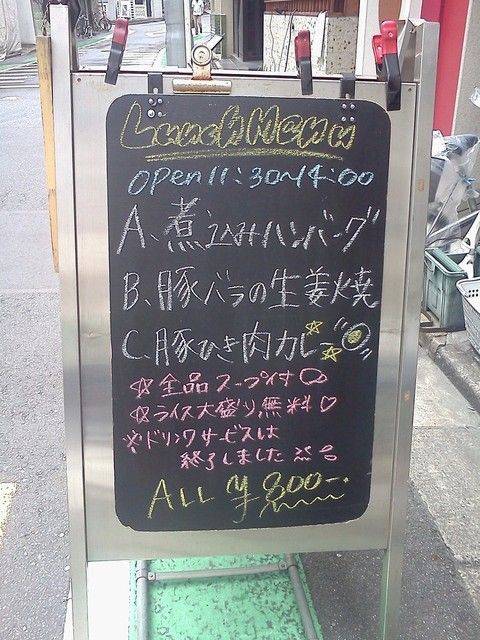 Lunch Menu
OPEN 11:30~14:00
A、煮込みハンバーグ
B、豚バラの生姜焼
C、豚ひき肉カレー
☆全品スープ付
☆ライス大盛り無料♡
※ドリンクサービスは
終了しました
ALL ¥800-.